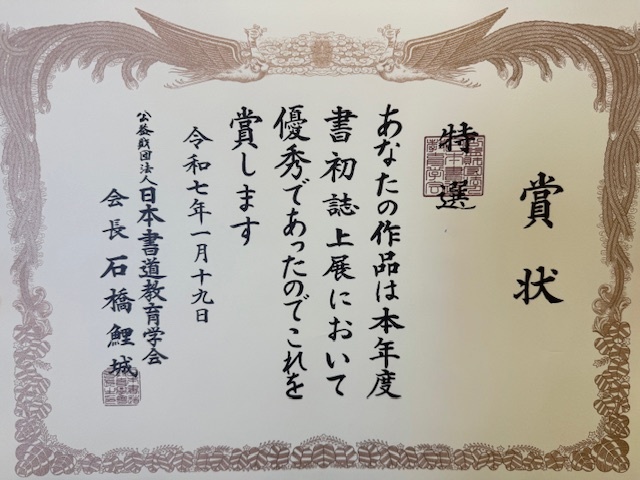 賞状
特選
あなたの作品は本年度
書初誌上展において
優秀であったのでこれを
賞します
令和七年一月十九日
公益財団法人日本書道教育学会
会長石橋鯉城